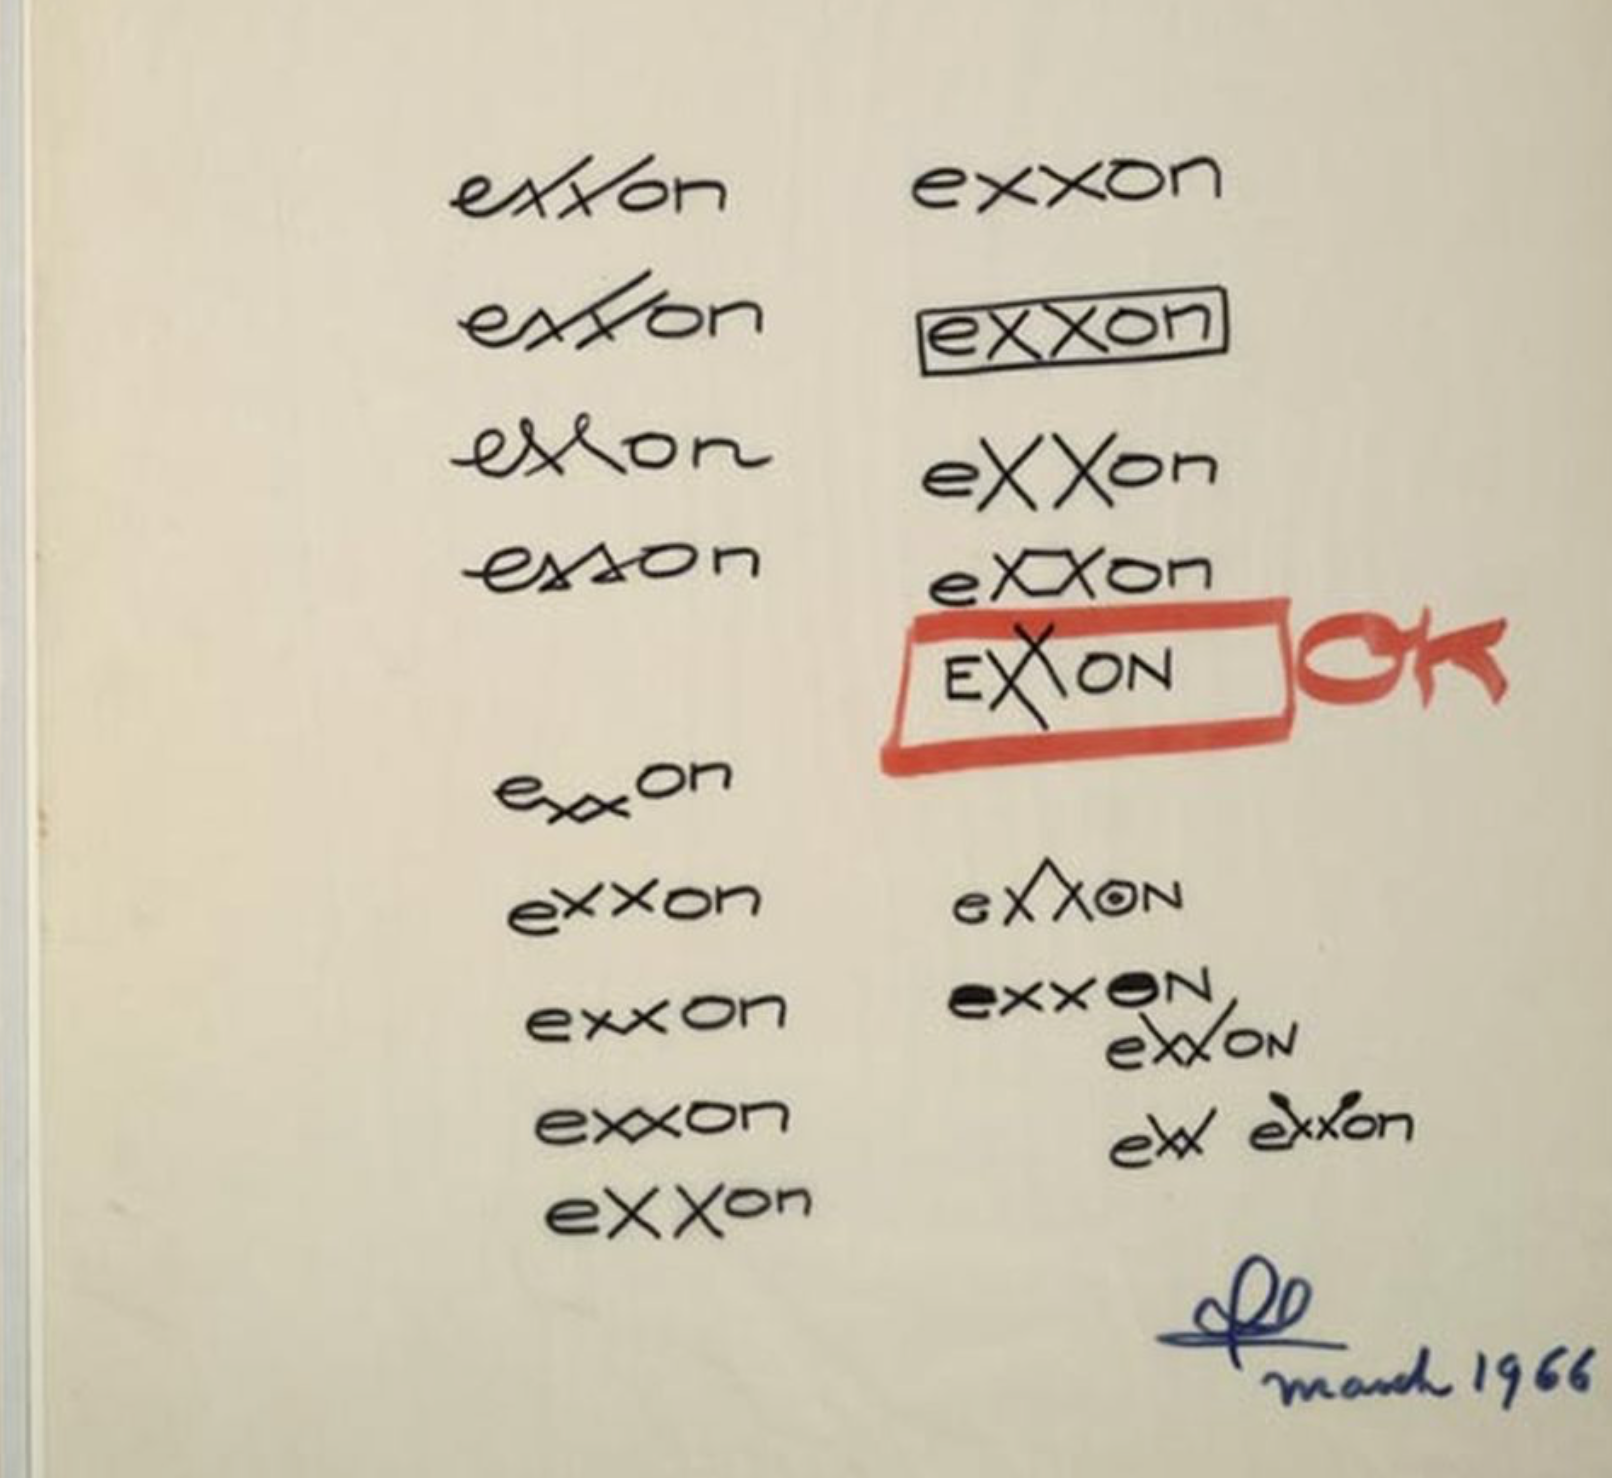 exxon
exxon
exxon
exxon
exxon
exxon
exxon
exxon
exxon
exxon
exxon
exxon
exxon
EXXON OK
exxON
exxON
exxON
exx exxon
march 1966